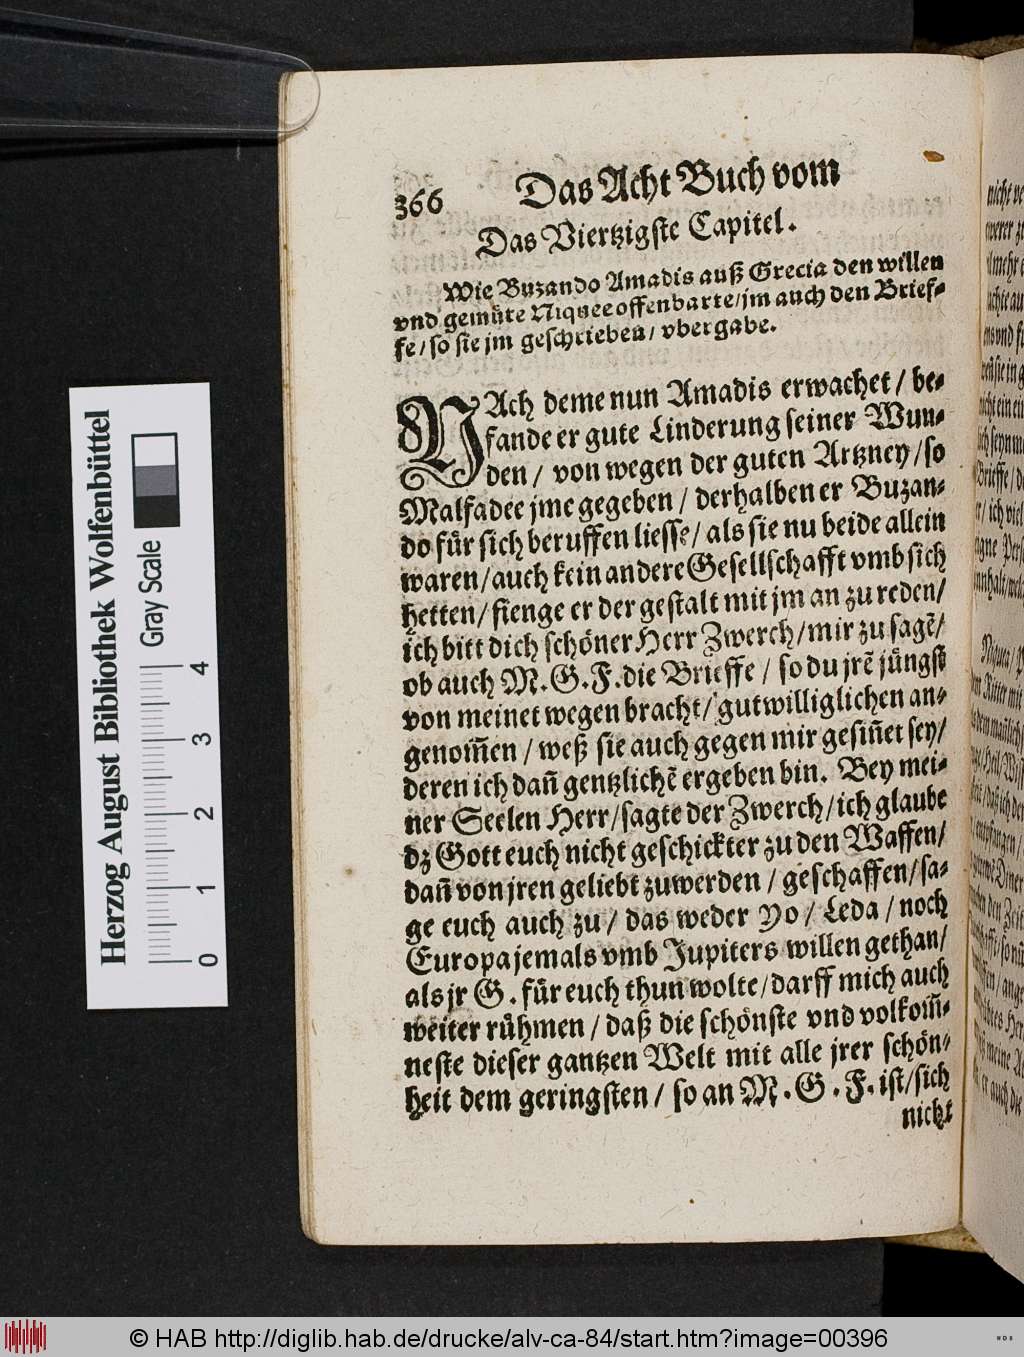 366 Das Acht Buch vom
Das Viertzigste Capitel.
Wie Buzando Amadis auß Grecia den willen
vnd gemüte Niquee offenbarte/jm auch den Brief-
fe/so sie jm geschrieben/ vbergabe.
NAch deme nun Amadis erwachet / be-
fande er gute Linderung seiner Wun-
den / von wegen der guten Artzney/so
Malfadee jme gegeben / derhalben er Buzan-
do für sich beruffen liesse/ als sie nu beide allein
waren/auch kein andere Gesellschafft vmb sich
hetten/fienge er der gestalt mit jm an zu reden/
ich bitt dich schöner Herr Zwerch/mir zu sagẽ/
ob auch M.G.F. die Brieffe / so du jrẽ jüngst
von meinet wegen bracht/ gutwilliglichen an-
genom̃en / weß sie auch gegen mir gesiñet sey/
deren ich dañ gentzlichẽ ergeben bin. Bey mei-
ner Seelen Herr/sagte der Zwerch/ich glaube
dz Gott euch nicht geschickter zu den Waffen/
dañ von jren geliebt zuwerden / geschaffen/sa-
ge euch auch zu / das weder Yo / Leda / noch
Europa jemals vmb Jupiters willen gethan/
als jr G. für euch thun wolte/darff mich auch
weiter rühmen / daß die schönste vnd volkom̃-
neste dieser gantzen Welt mit alle jrer schön-
heit dem geringsten / so an M.G.F. ist/sich
nicht
Herzog August Bibliothek Wolfenbüttel
Gray Scale
0 1 2 3 4
© HAB http://diglib.hab.de/drucke/alv-ca-84/start.htm?image=00396